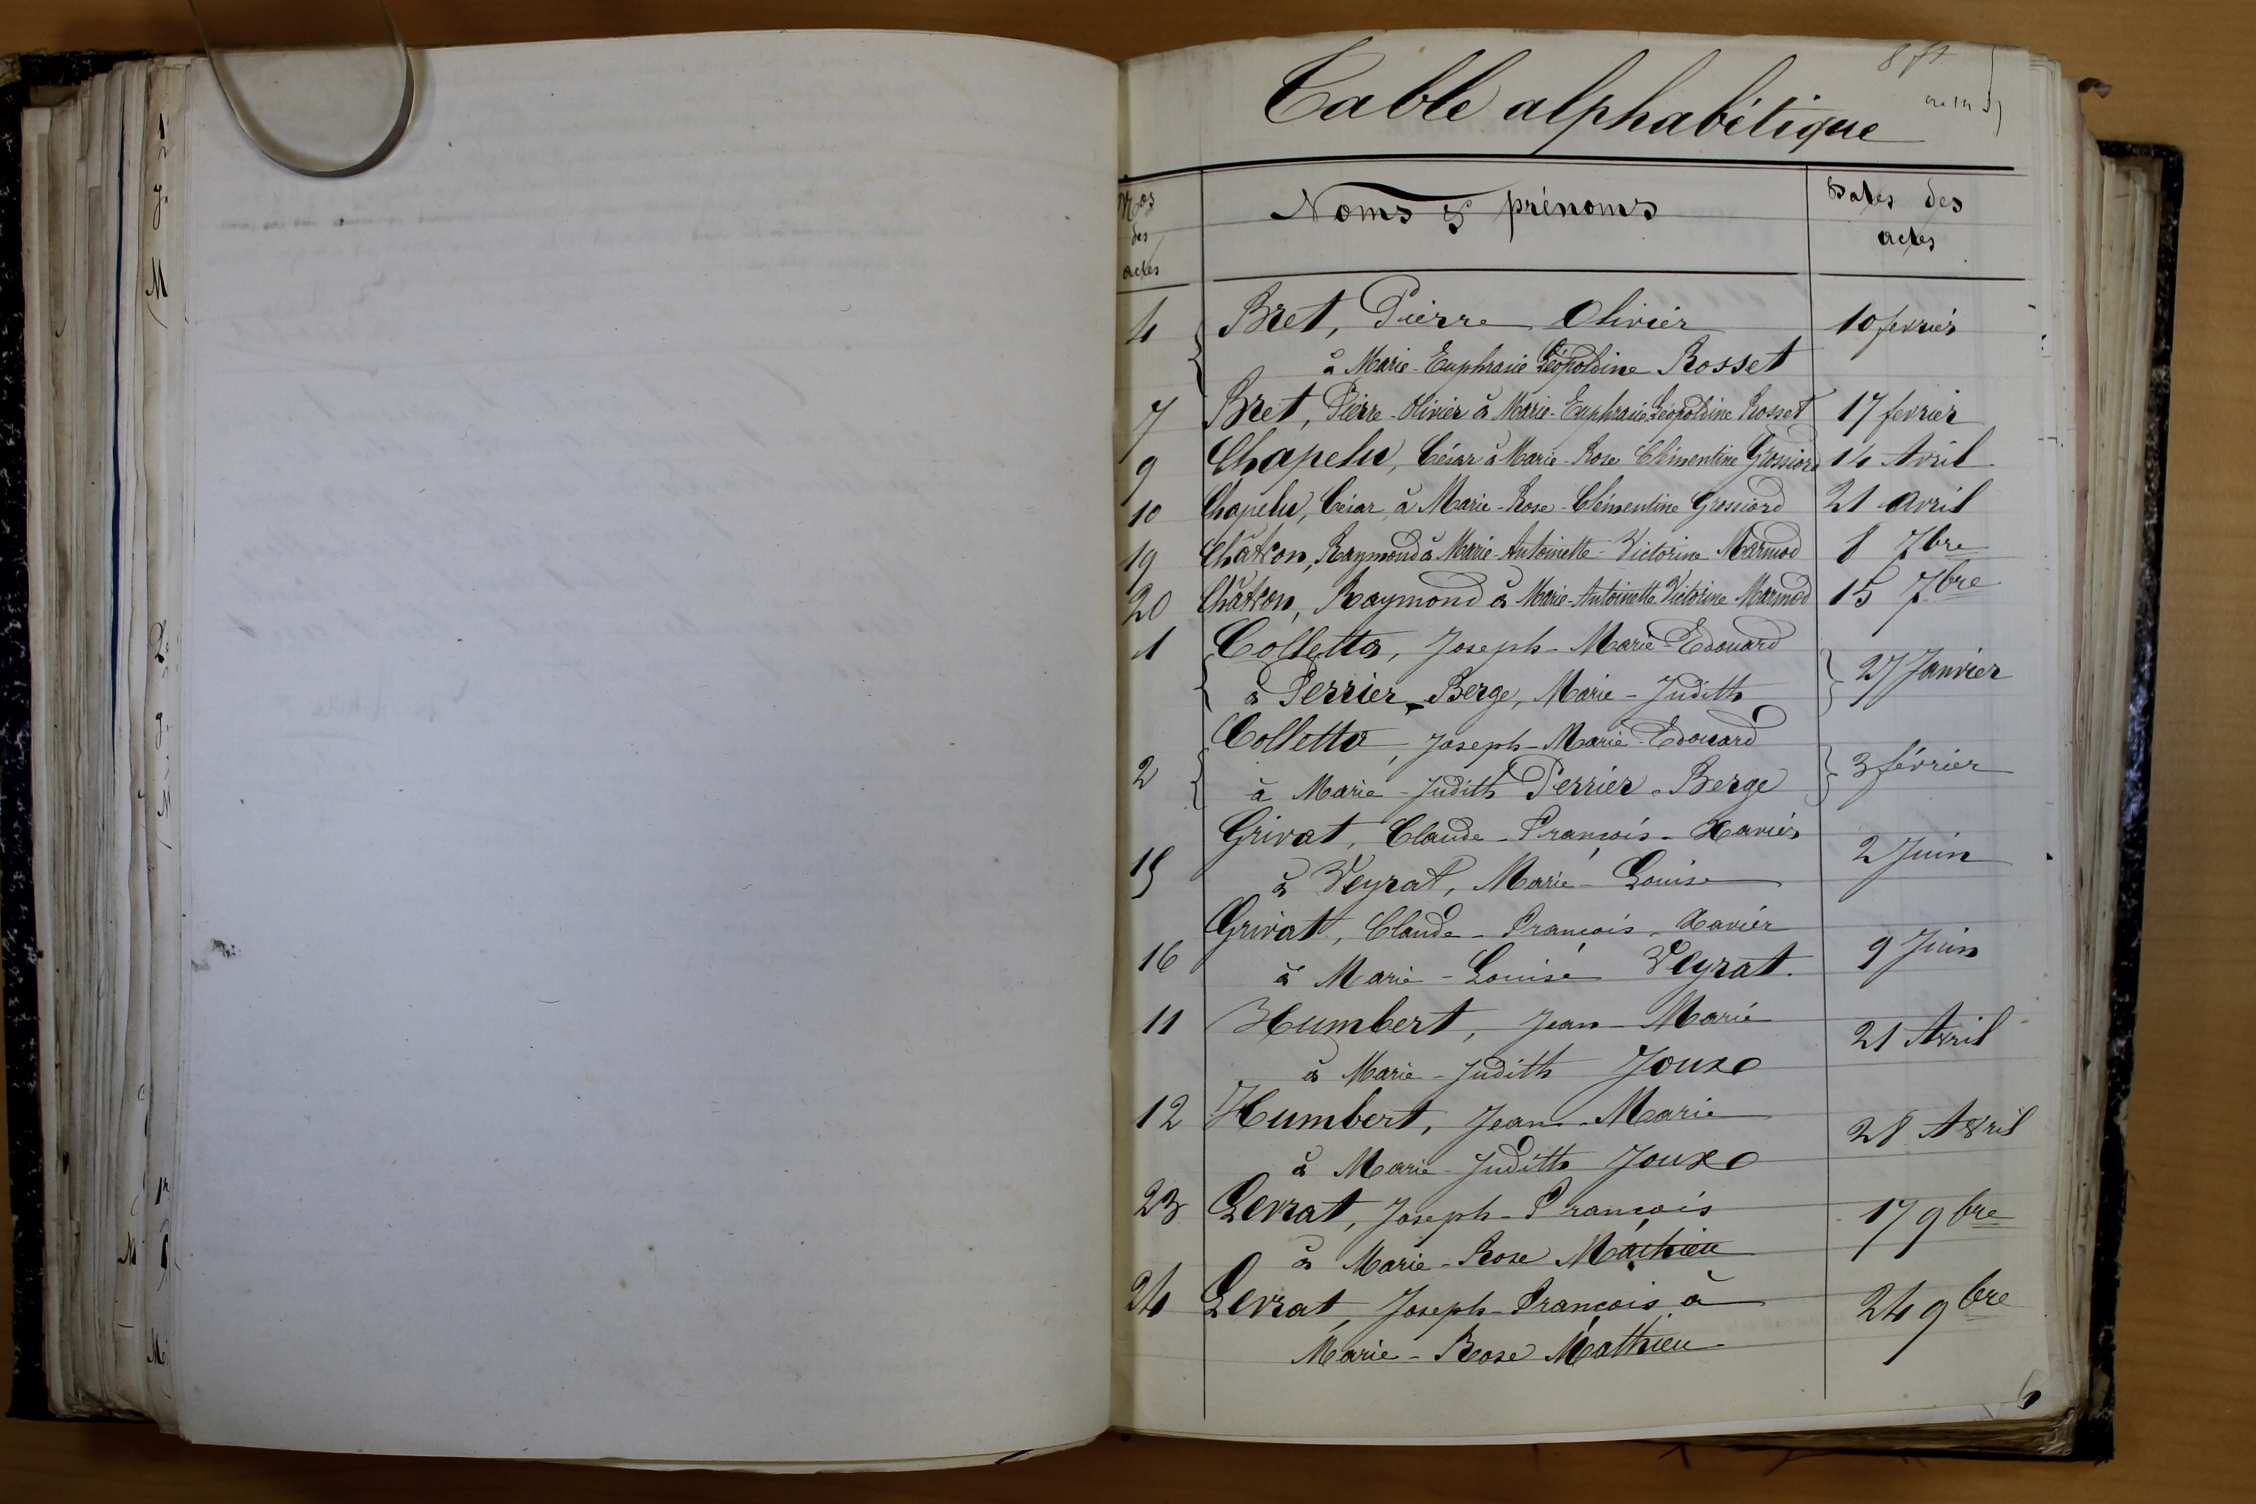 Table alphabétique
Nos des actes Noms & prénoms Dates des actes
4 Bret, Pierre Olivier 10 fevrier
à Marie-Euphrasie Léopoldine Rosset
7 Bret, Pierre-Olivier à Marie-Euphrasie Léopoldine Rosset 17 fevrier
9 Chapelu, César à Marie-Rose Clémentine Grossiord 14 Avril
10 Chapelu, César, à Marie-Rose-Clémentine Grossiord 21 avril
19 Châtron, Raymond à Marie-Antoinette-Victorine Marmod 8 7bre
20 Châtron, Raymond à Marie-Antoinette Victorine Marmod 15 7bre
1 Colletta, Joseph-Marie-Edouard
à Perrier-Berge, Marie-Judith 27 Janvier
Colletta, Joseph-Marie-Edouard
2 à Marie-Judith Perrier-Berge 3 février
Grivat, Claude-François-Xavier
15 à Veyrat, Marie-Louise 2 Juin
Grivat, Claude-François-Xavier
16 à Marie-Louise Veyrat. 9 Juin
11 Humbert, Jean-Marie 21 Avril
à Marie-Judith Joux
12 Humbert, Jean-Marie 28 Avril
à Marie-Judith Joux
23 Levrat, Joseph-François 17 9bre
à Marie-Rose Mathieu
24 Levrat, Joseph-François à 24 9bre
Marie-Rose Mathieu